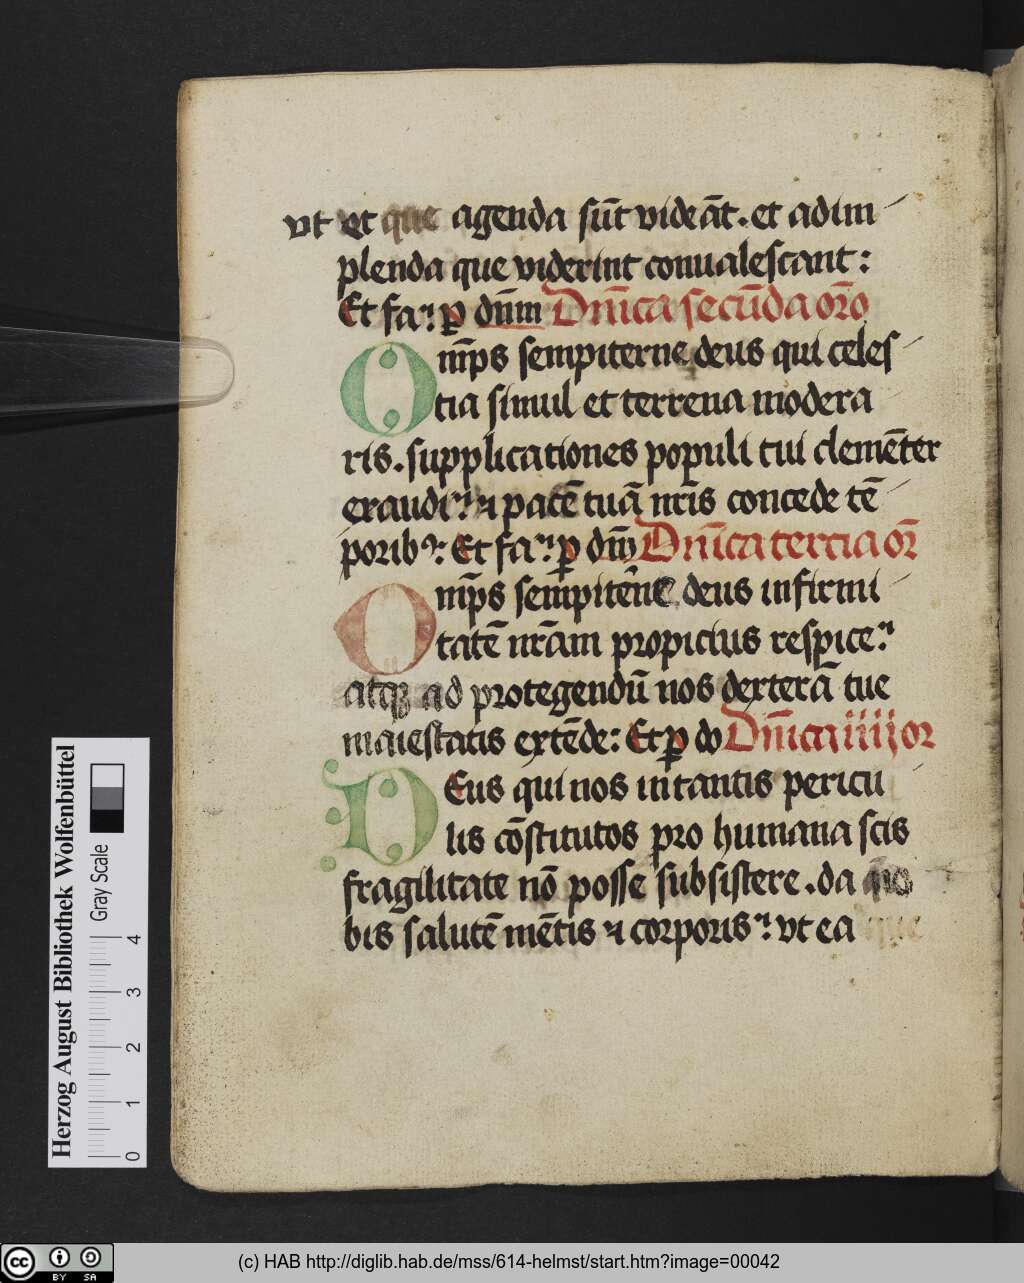 vt et que agenda sūt videāt. et adim
plenda que viderint conualescant:
Et fa: p dn̄m Dn̄ica secūda or̄o
Om̄ps sempiterne deus qui celes
tia simul et terrena modera
ris. supplicationes populi tui clemēter
exaudi: ⁊ pacē tuā nr̄is concede tē
poribꝰ: Et fa: p dn̄m Dn̄ica tercia or̄
Om̄ps sempitern̄e deus infirmi
tatē nr̄am propicius respice:
atqꝫ ad protegendū nos dexterā tue
maiestatis extēde: Et p do Dn̄ica iiij or
DEus qui nos in tantis pericu
lis cōstitutos pro humana scis
fragilitate nō posse subsistere. da no
bis salutē mētis ⁊ corporis: vt ea que
Herzog August Bibliothek Wolfenbüttel
Gray Scale
0 1 2 3 4
cc BY SA
(c) HAB http://diglib.hab.de/mss/614-helmst/start.htm?image=00042